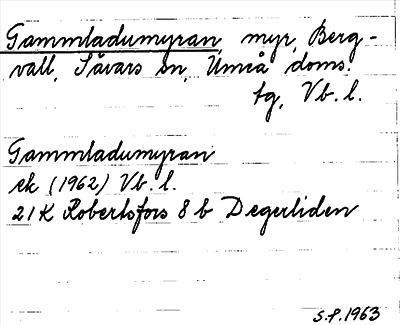 Gammladumyran, myr, Berg-
vall, Sävars sn, Umeå doms.
tg, Vb. l.
Gammladumyran
ek (1962) Vb. l.
21K Robertsfors 8 b Degerliden
S.P. 1963